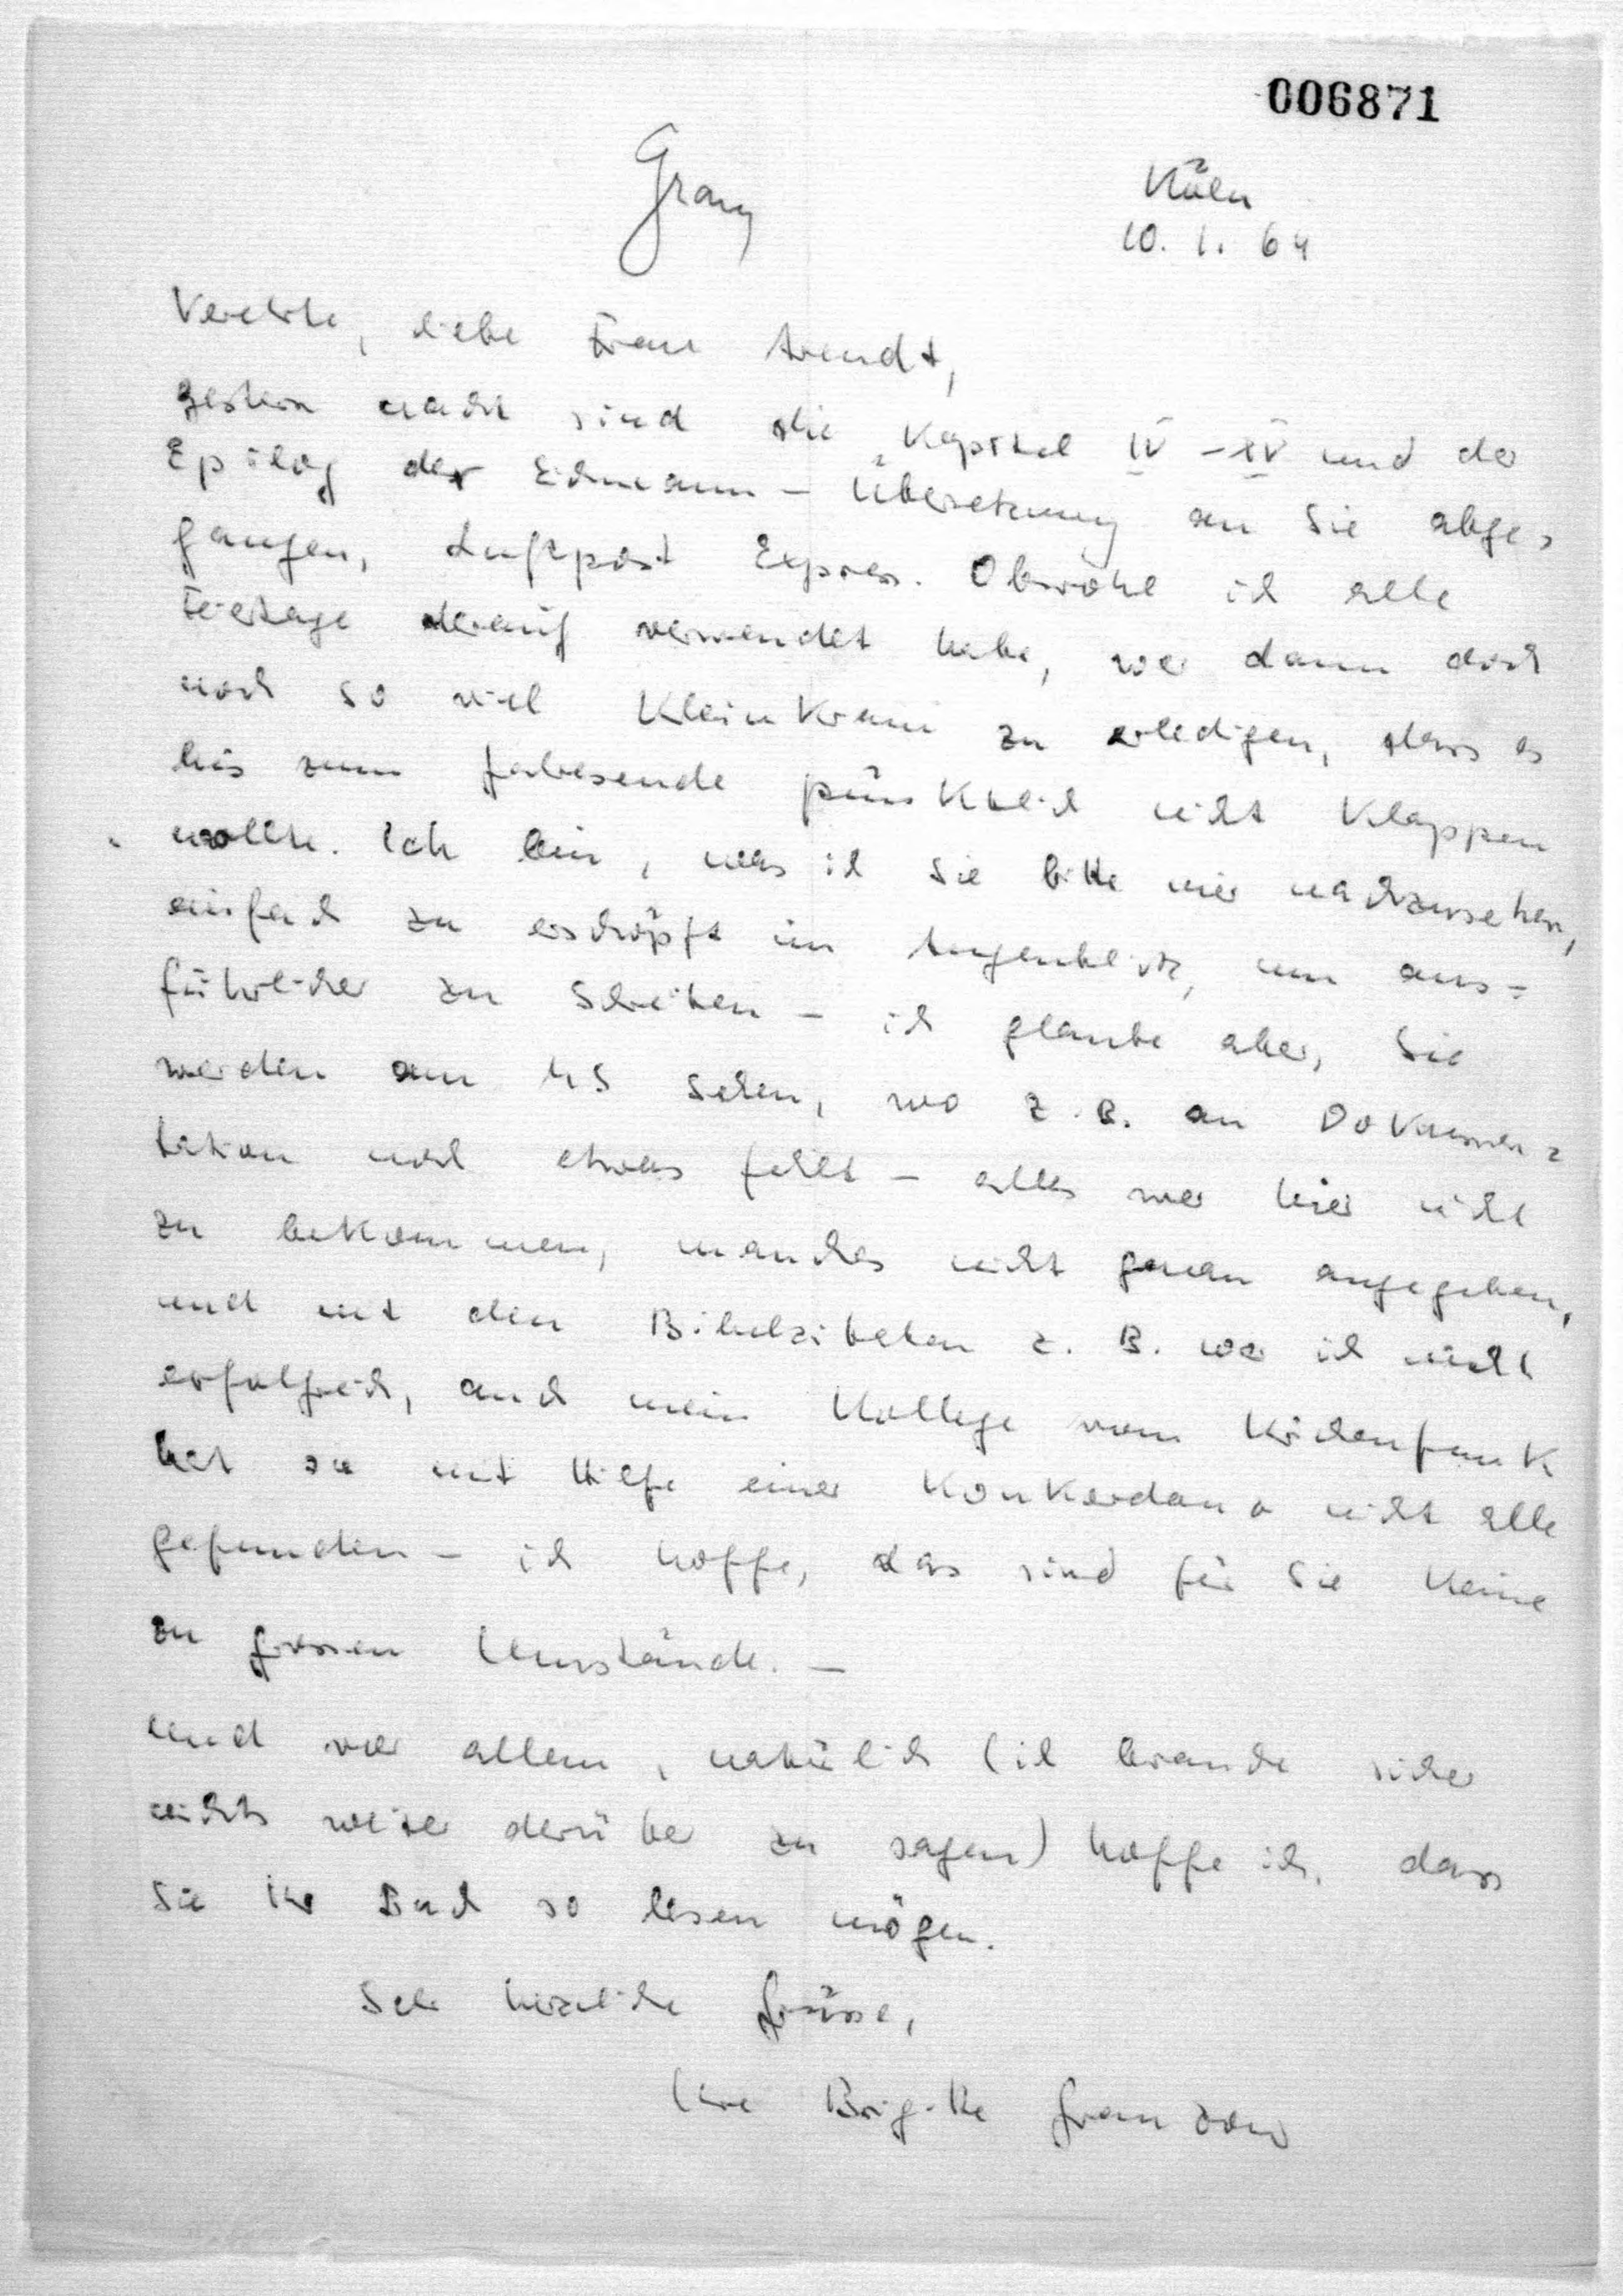 006871
Granz
Köln
10. 1. 64
Verehrte, liebe Frau Arendt,
gestern nacht sind die Kapitel IV - XV und der
Epilog der Eichmann - Übersetzung an Sie abge-
gangen, Luftpost Express. Obwohl ich alle
Feiertage darauf verwendet habe, war dann doch
noch so viel Kleinkram zu erledigen, dass es
bis zum Jahresende pünktlich nicht klappen
wollte. Ich bin, was ich Sie bitte mir nachzusehen,
einfach zu erschöpft im Augenblick, um aus=
führlicher zu schreiben - ich glaube aber, Sie
werden am MS sehen, wo z. B. an Dokumen=
tation noch etwas fehlt - alles war hier nicht
zu bekommen, manches nicht genau angegeben,
und mit den Bibelzitaten z. B. war ich nicht
erfolgreich, auch mein Kollege vom Kirchenfunk
hat sie mit Hilfe einer Konkordanz nicht alle
gefunden - ich hoffe, das sind für Sie keine
zu grossen Umstände. -
Und vor allem, natürlich (ich brauche sicher
nichts weiter darüber zu sagen) hoffe ich, dass
Sie Ihr Buch so lesen mögen.
Sehr herzliche Grüsse,
Ihre Brigitte Granzow